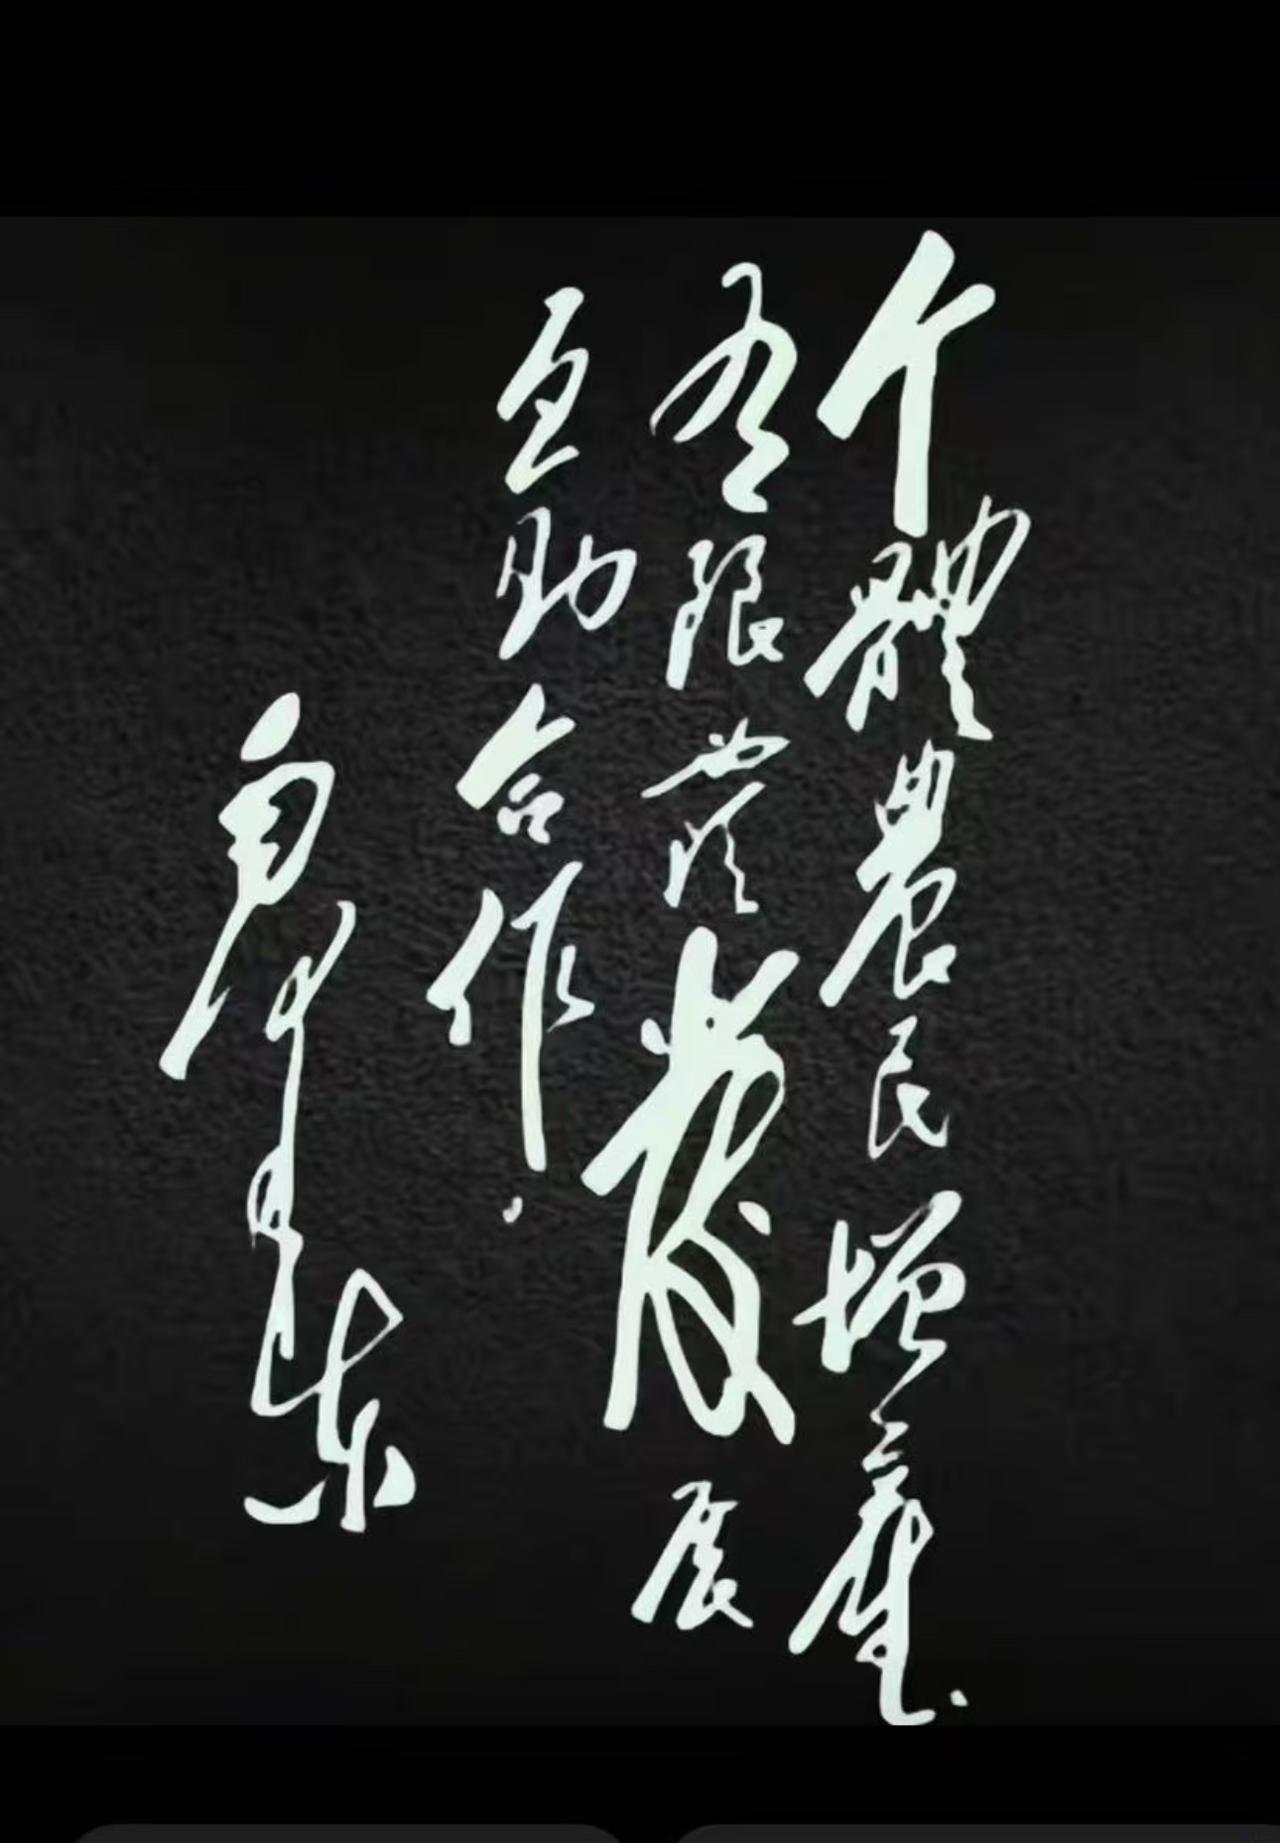 个體農民增產
有限必須發展
互助合作
毛澤東